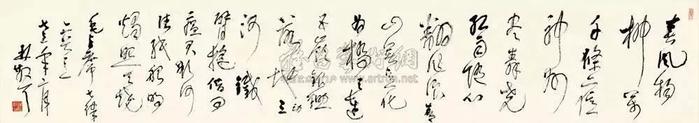 春风杨
柳万
千条六亿
神州
尽舜尧
红雨随心
翻作浪青
山着意化
为桥天连
五岭银锄
落地动三
河铁
臂摇借问
瘟君欲何
往纸船明
烛照天烧
毛主席七律
林散耳